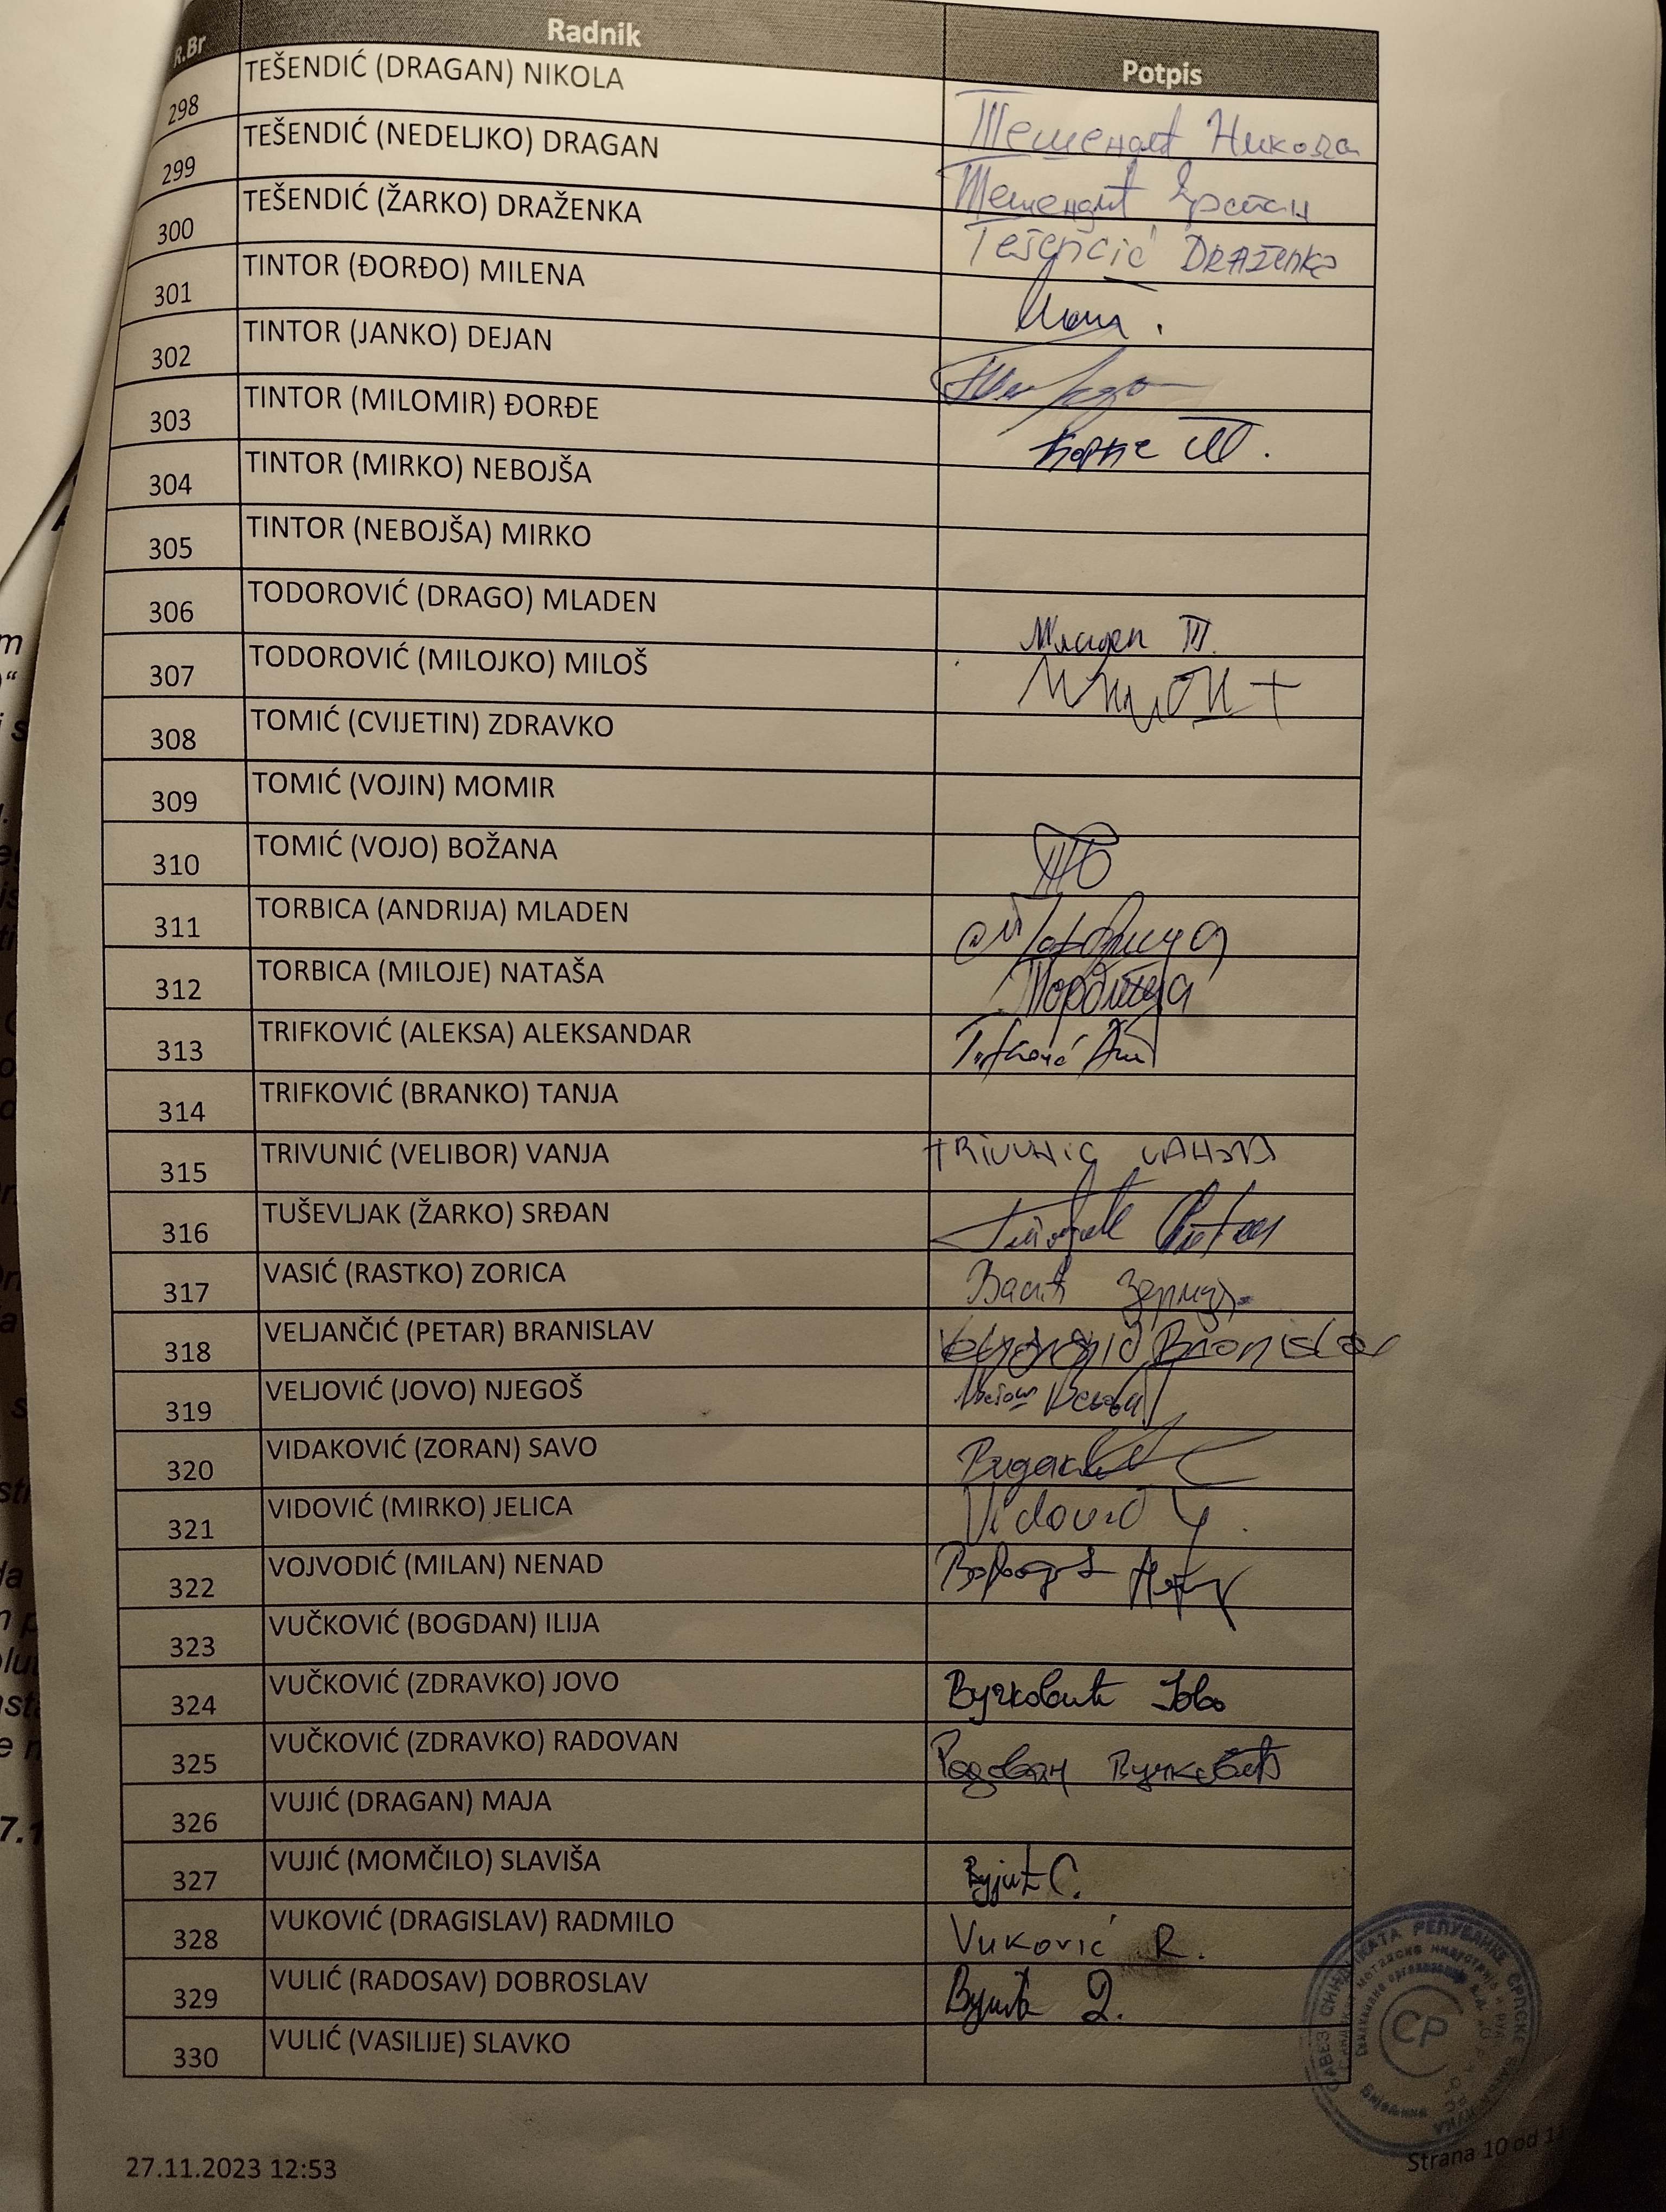 R.Br Radnik Potpis
298 TEŠENDIĆ (DRAGAN) NIKOLA Тешендић Никола
299 TEŠENDIĆ (NEDELJKO) DRAGAN Тешендић Драган
300 TEŠENDIĆ (ŽARKO) DRAŽENKA Tešendić DRAŽENKA
301 TINTOR (ĐORĐO) MILENA
302 TINTOR (JANKO) DEJAN
303 TINTOR (MILOMIR) ĐORĐE Ђорђе Т.
304 TINTOR (MIRKO) NEBOJŠA
305 TINTOR (NEBOJŠA) MIRKO
306 TODOROVIĆ (DRAGO) MLADEN Младен Т.
307 TODOROVIĆ (MILOJKO) MILOŠ
308 TOMIĆ (CVIJETIN) ZDRAVKO
309 TOMIĆ (VOJIN) MOMIR
310 TOMIĆ (VOJO) BOŽANA ТБ
311 TORBICA (ANDRIJA) MLADEN М Торбица
312 TORBICA (MILOJE) NATAŠA Торбица
313 TRIFKOVIĆ (ALEKSA) ALEKSANDAR
314 TRIFKOVIĆ (BRANKO) TANJA
315 TRIVUNIĆ (VELIBOR) VANJA TRIVUNIC
316 TUŠEVLJAK (ŽARKO) SRĐAN
317 VASIĆ (RASTKO) ZORICA Васић Зорица
318 VELJANČIĆ (PETAR) BRANISLAV Veljančić Branislav
319 VELJOVIĆ (JOVO) NJEGOŠ
320 VIDAKOVIĆ (ZORAN) SAVO
321 VIDOVIĆ (MIRKO) JELICA Vidović J.
322 VOJVODIĆ (MILAN) NENAD
323 VUČKOVIĆ (BOGDAN) ILIJA
324 VUČKOVIĆ (ZDRAVKO) JOVO Вучковић Јово
325 VUČKOVIĆ (ZDRAVKO) RADOVAN Радован Вучковић
326 VUJIĆ (DRAGAN) MAJA
327 VUJIĆ (MOMČILO) SLAVIŠA Вујић С.
328 VUKOVIĆ (DRAGISLAV) RADMILO Vuković R.
329 VULIĆ (RADOSAV) DOBROSLAV Вулић Д.
330 VULIĆ (VASILIJE) SLAVKO
САВЕЗ СИНДИКАТА РЕПУБЛИКЕ СРПСКЕ БАЊА ЛУКА
СР
27.11.2023 12:53
Strana 10 od 11